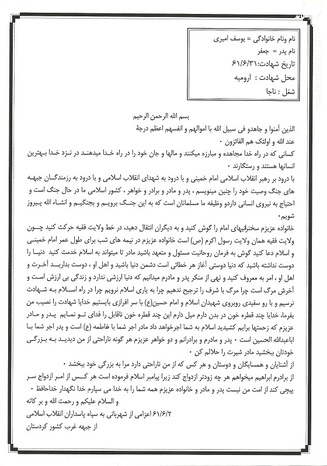 نام ونام خانوادگی = یوسف امیری
نام پدر = جعفر
تاریخ شهادت:۶۱/۶/۳۱
محل شهادت : ارومیه
شغل : ناجا
بسم الله الرحمن الرحیم
الذین آمنوا و جاهدو فی سبیل الله با اموالهم و انفسهم اعظم درجة
عند الله و اولئک هم الفائزون .
کسانی که در راه خدا مجاهده و مبارزه میکنند و مالها و جان خود را در راه خدا میدهند در نزد خدا بهترین
انسانها هستند و رستگارند .
با درود بر رهبر انقلاب اسلامی امام خمینی و با درود به شهدای انقلاب اسلامی و با درود به رزمندگان جبهه
های جنگ وصیت خود را چنین مینویسم ، پدر و مادر و برادر و خواهر ، کشور اسلامی ما در حال جنگ است و
احتیاج به نیروی انسانی داردو وظیفه ما مسلمانان است که به این جنگ برویم و بجنگیم و انشاء الله پیروز
شویم .
خانواده عزیزم سخنرانیهای امام را گوش کنید و به دیگران انتقال دهید، در خط ولایت فقیه حرکت کنید چون
ولایت فقیه همان ولایت رسول اکرم (ص) است خانواده عزیزم در نیمه های شب برای طول عمر امام خمینی
و اسلام دعا کنید گوش به فرمان روحانیت مسئول و متعهد باشید مادر تا میتواند به اسلام خدمت کنید دنیا را
دوست نداشته باشید که دنیا دوستی آغاز هر خطائی است دشمن دنیا باشید و اهل او ، دوست بدارید آخرت و
اهل او ، امر به معروف کنید و نهی از منکر پدر و مادرم میدانید که دنیا ارزشی ندارد و زندگی بی ارزش است و
آخرش مرگ است چرا مرگ با شرف را ترجیح ندهیم چرا به یاری اسلام نرویم چرا در راه استقلال به شهادت
نرسیم و با رو سفیدی روبروی شهیدان اسلام و امام حسین(ع) با سر افرازی بایستیم خدایا شهادت را نصیب من
بفرما، خدایا چند قطره خون در بدن دارم میل دارم این چند قطره خون ناقابل را فدای تو نمایم پدر و مادر
عزیزم که زحمتها برایم کشیدید اسلام به شما اجرخواهد داد مادر اجر شما با فاطمه (ع) است و پدر اجر شما با
اباعبدالله الحسین است . پدر و مادرم و برادرانم و دو خواهر عزیزم هر گونه ناراحتی از من دیدید به بزرگی
خودتان ببخشید مادر شیرت را حلالم کن .
از آشنایان و همسایگان و دوستان و هر کس که از من ناراحتی دارد مرا به بزرگی خود ببخشد .
از برادرم ابراهیم میخواهم هر چه زودتر ازدواج کند زیرا پیامبر اسلام فرموده است هر کس از امر ازدواج سر
پیچی کند از امت من نیست پدر و مادر و خانواده عزیزم همه شما را به خدا می سپارم خدا نگهدار خداحافظ .
و السلام علیکم و رحمت الله و بر کاته
۶۱/۶/۲ اعزامی از شهربانی به سپاه پاسداران انقلاب اسلامی
از جبهه غرب کشور کردستان